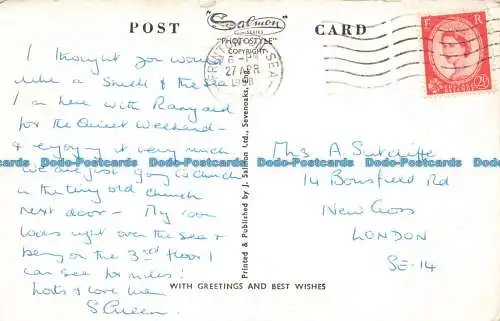 POST
"Salmon"
SERIES
"PHOTOSTYLE"
COPYRIGHT
CARD
27 APR
E R
2½
I thought you would
like a Smell of the Sea
I am here with
for the Quiet Weekend -
& enjoying it very much
We are just going to Church
in the tiny old church
next door - My room
looks right over the sea &
being on the 3rd floor I
can see for miles!
Lots of love from
S Green
Printed & Published by J. Salmon Ltd., Sevenoaks, Eng.
Mrs A. Sutcliffe
14 Bousfield Rd
New Cross
LONDON
SE-14
WITH GREETINGS AND BEST WISHES
Dodo-Postcards Dodo-Postcards Dodo-Postcards Dodo-Postcards